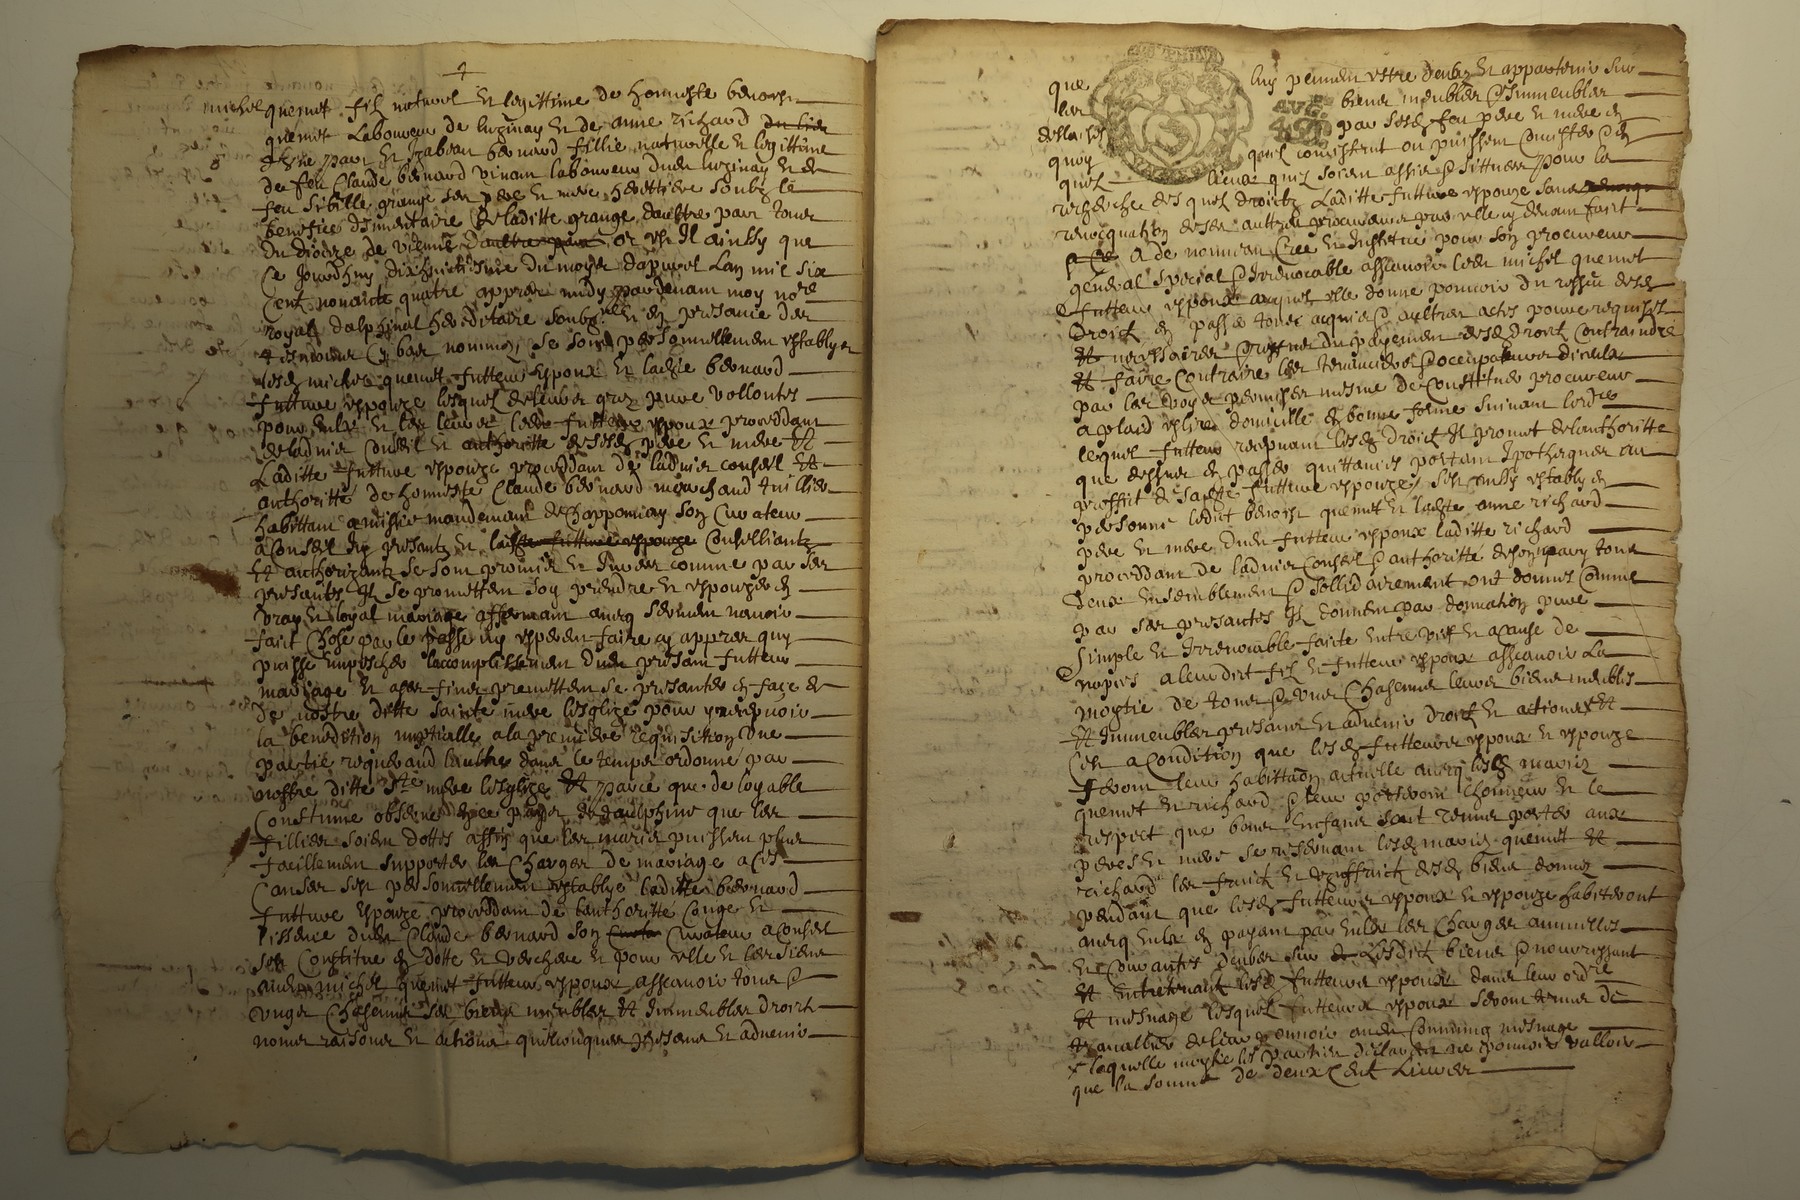 michel quemet filz naturel et legittime de honneste benoist
quemet laboureur de luzinay et de anne richard
dune part et izabeau bernard fillie naturelle et legittime
de feu claude bernard vivant laboureur dudit luzinay et de
feu sibille grange ses pere et mere herettiere soubz le
benefice dinventaire de laditte grange daultre part tous
du dioceze de vienne or est il ainssy que
ce jourdhuy dixhuictiesme du moys dapvril lan mil six
cent nonante quatre appres midy pardevant moy nore
royal dalphinal hereditaire soubz.ne et en presance des
tesmoins cy bas nommez se sont personnellement establys
lesd michel quemet futteur espoux et lad bernard
future espouze lesquelz de leurs grez pure vollontes
pour eulx et les leurs led futteur espoux proceddant
de ladvis conseil et authoritte de sesd pere et mere et
laditte future espouze proceddant de ladvis conseil et
authoritté de honneste claude bernard marchand tuillier
habittant mandemant de chapponnay son curateur
a conseil icy presantz et conseilliantz
et authorizantz se sont promis et jurés comme par ses
presantes ilz se promettent soy prendre et espouzer en
vray et loyal mariage affermant avecq serment navoir
fait chose par le passe ny esperer faire cy appres quy
puisse empescher laccomplissement dud presant futteur
mariage et a ses fins promettent se presanter en face de
de nostre ditte sainte mere lesglize pour y recepvoir
la benedition nuptialle a la premiere requisition dune
partie requerand lautre dans le temps ordonné par
nostre ditte ste mere lesglize et parce que de loyable
coustume observee en ce pays de daulphine que les
fillies soient dottes affin que les maris puissent plus
facillement supporter les charges de mariage a ces
causes sest personnellement establye laditte bernard
future espouze proceddant de lauthoritté congé et
lissence dud claude bernard son curateur a conseil
sest constitue en dotte et verchere et pour elle et les siens
aud michel quemet futteur espoux asscavoir tous et
ungs chascuns ses biens meubles et immeubles droictz
noms raisons et actions quelconques presans et advenir
que luy peuvent estre deubz et appartenir sur
les biens meubles et immeubles
delaisses par sesd feu pere et mere en
quoy quilz concistent ou puissent concister et en
quelz lieux quilz soient assis et sittues pour la
recherche desquelz droictz laditte future espouze sans
revocquation de ses aultres procureurs par elle cy devant faict
a de nouveau cree et institue pour son procureur
general special et irrevocable asscavoir led michel quemet
futteur espoux auquel elle donne pouvoir du ressu desd
droictz en passer tous acquis et aultres actes pour ce requis et
necessaires du payement desd droictz contraindre
et faire contraire les tenanciers et occupateurs diceulx
par les voyes permises mesme de constituer procureur
a plaid eslire domicille en bonne forme suivant lordre
lequel futteur recepvant lesd droictz il promet de lauthoritte
que dessus en passer quittances portant ipotheques au
proffit de sadte future espouze, sest ainssy estably en
personne ledict benoist quemet et ladte anne richard
pere et mere dud futteur espoux laditte richard
proceddant de ladvis conseil et authoritté de son mary tous
deux ensemblement et sollidairement ont donnes comme
par ses presantes ilz donnent par donnation pure
simple et irrevocable faicte entre vifz et a cause de
nopces a leurdict filz et futteur espoux asscavoir la
moytie de tous et ungs chascuns leurs biens meubles
et immeubles presans et advenir droictz et actions et
cest a condition que lesd futteurs espoux et espouze
feront leur habittaon actuelle avecq lesd mariez
quemet et richard et leur porteront lhonneur et le
respect que bons enfans sont tenus porter aux
peres et mere se reservant lesd mariez quemet et
richard les fruictz et uzuffruictz desd biens donnez
pendant que lesd futteurs espoux et espouze habiteront
avecq eulx en payant par eulx les charges annuelles
et courantes deubes sur lesdictz biens et nourrissant
et entretenant lesd futteurs espoux dans leur ordre
et mesnage lesquelz futteurs espoux seront tenus de
travallier de leur pouvoir aud commung mesnage
laquelle moytie les parties declarent ne pouvoir valloir
que la somme de deux cent livres